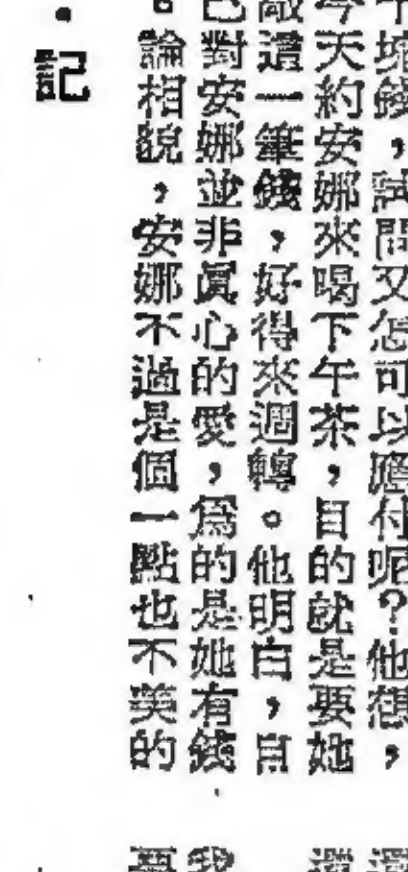 十塊錢，試問又怎可以應付呢？他想，
今天約安娜來喝下午茶，目的就是要她
敲這一筆錢，好得來週轉。他明白，自
己對安娜並非眞心的愛，爲的是她有錢
。論相貌，安娜不過是個一點也不美的
・記